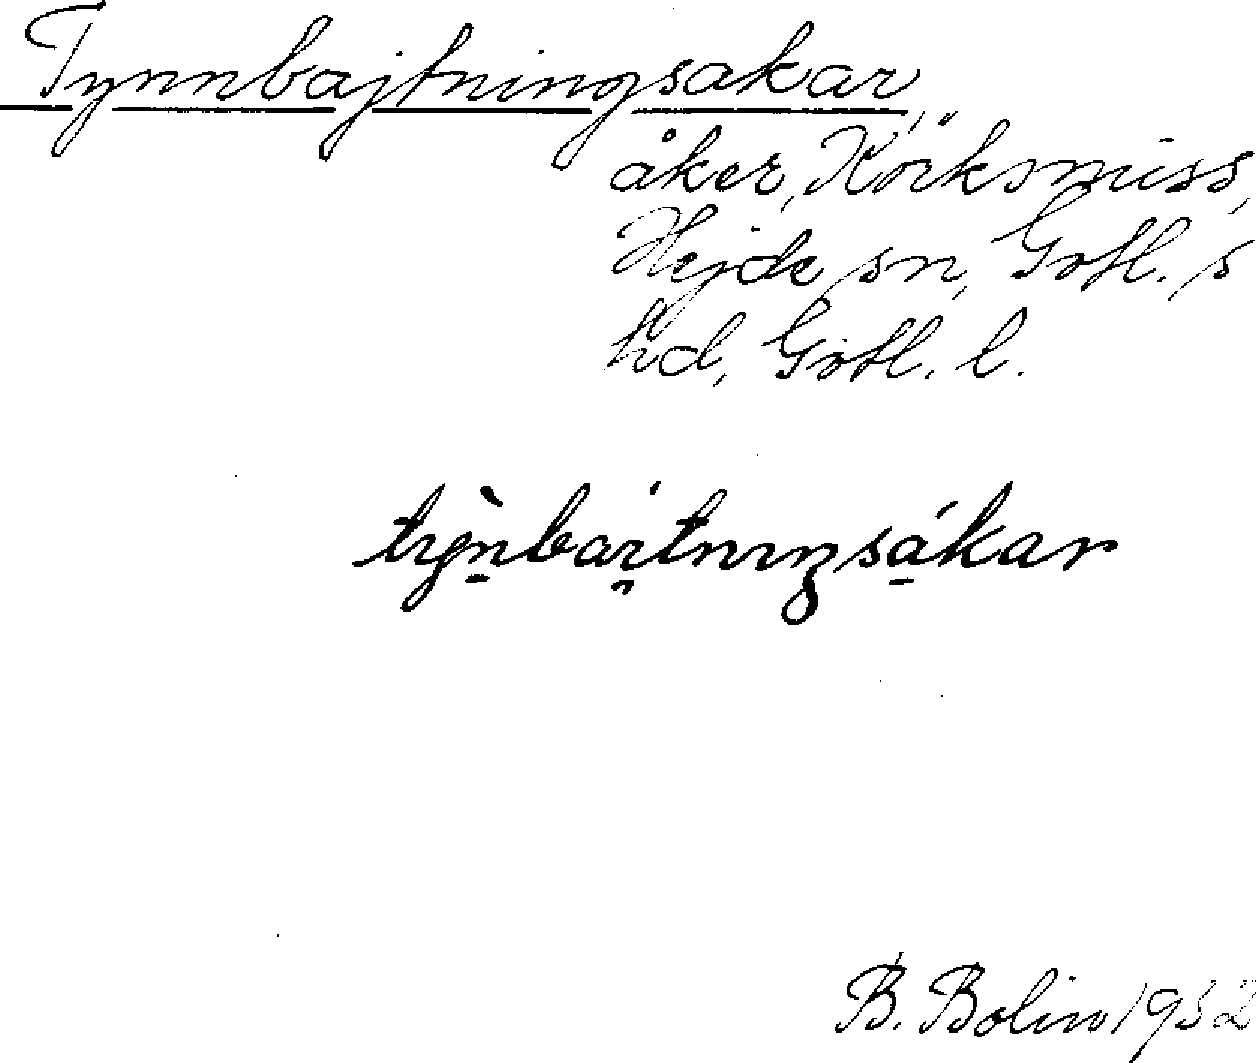 Tynnbajtningsakar,
åker, Körksmiss,
Hejde sn, Gotl. s
hd, Gotl. l.
tỳn̠bai̯tnɪŋsá̠kar
B. Bolin 1932